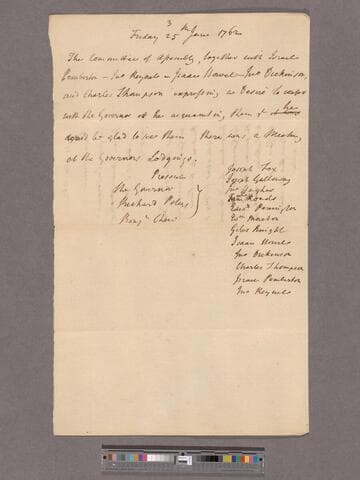 3
Friday 25th June 1762
The Committee of Assembly together with Israel
Pemberton - Jno Reynels - Isaac Howel - Jno Dickinson,
and Charles Thompson expressing a Desire to confer
with the Governor at the acquainting them yt he
would be glad to see them there was a Meeting
at the Governors Lodgings.
Present
The Governor
Richard Peters
Benjn Chew
Joseph Fox
Joseph Galloway
Jno Hughes
Saml Rhoads
Edwd Pennington
Giles Knight
Isaac Howel
Jno Dickenson
Charles Thompson
Israel Pemberton
Jno Reynels